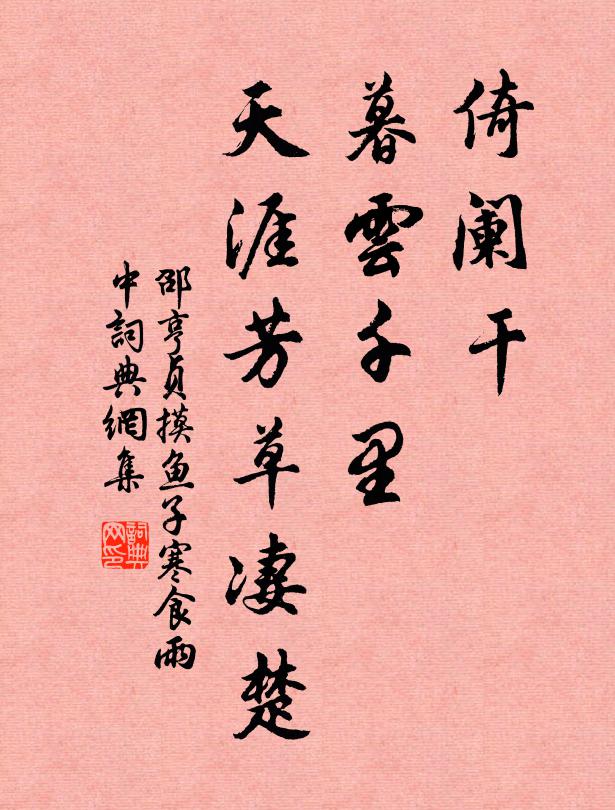 倚阑干
暮雲千里
天涯芳草凄楚
邵亨貞摸鱼子寒食雨
中詞典網集
詞典
网印